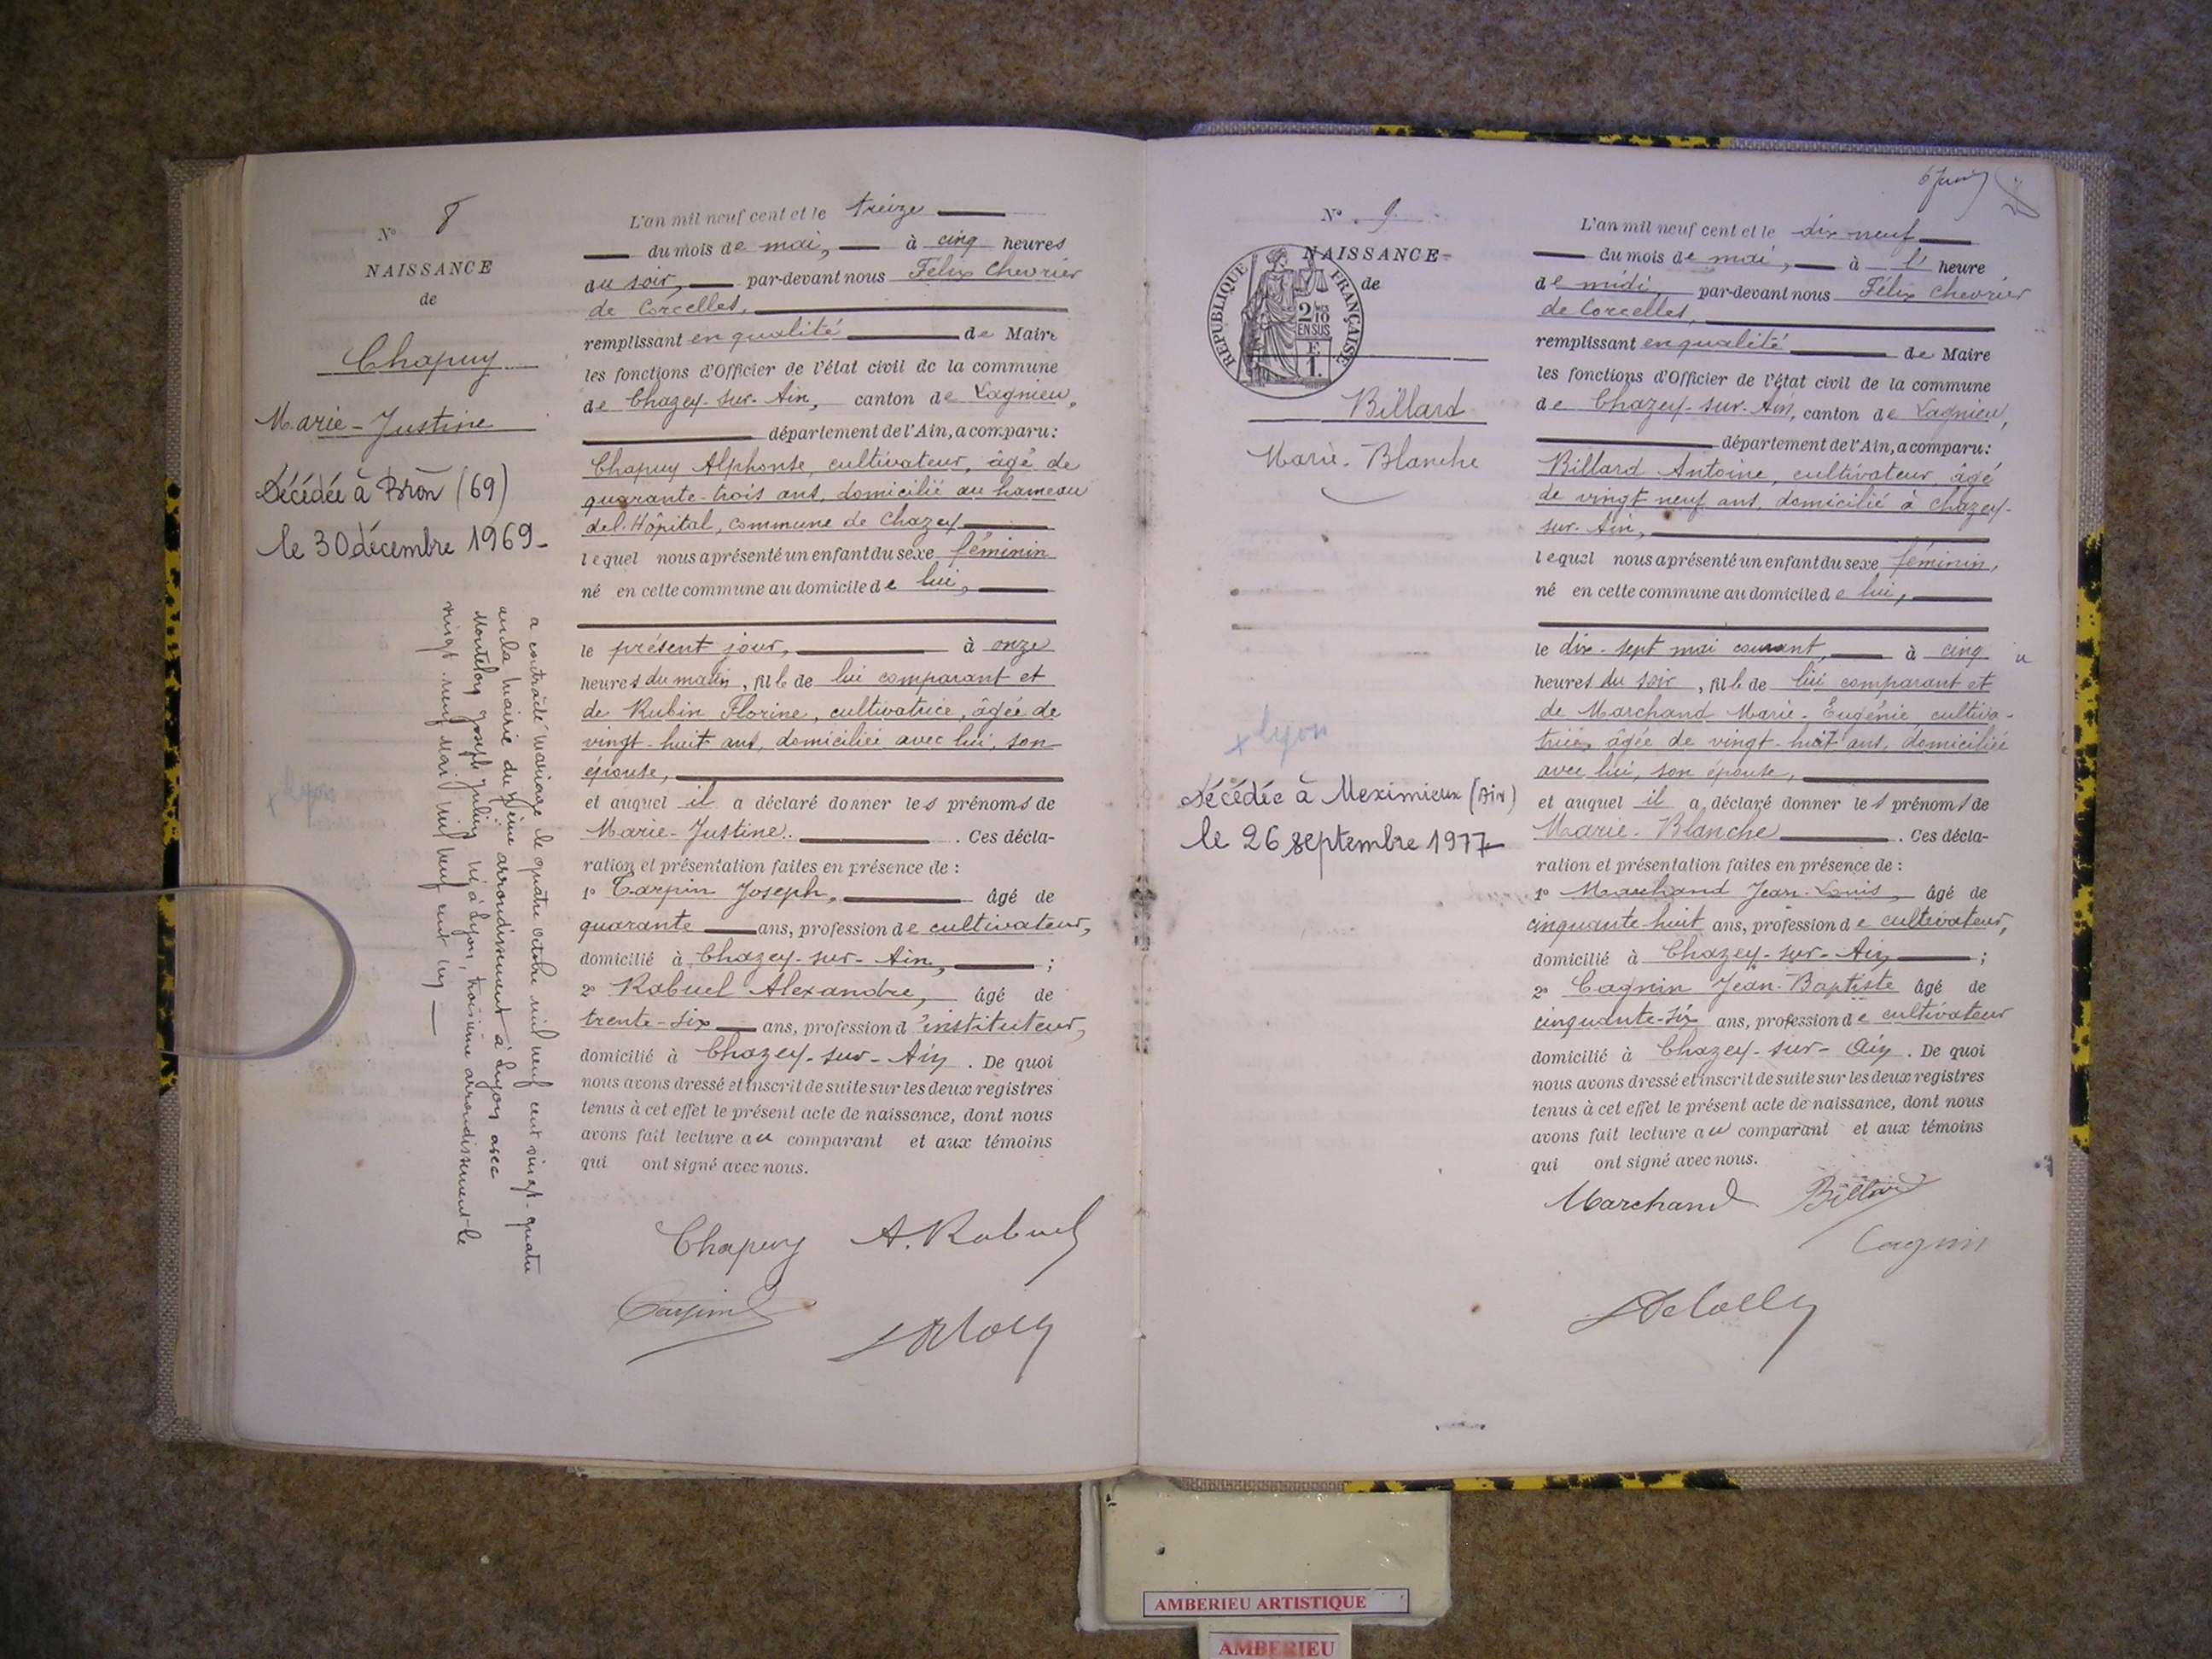 N° 8
NAISSANCE
de
Chapuy
Marie-Justine
Décédée à Bron (69)
le 30 décembre 1969-
a contracté mariage le quatre octobre mil neuf cent vingt-quatre
en la mairie du arrondissement à Lyon avec
Joseph Julien né à Lyon, troisième arrondissement le
vingt-neuf Mai mil neuf cent
x Lyon
L'an mil neuf cent et le treize
du mois de mai, à cinq heures
du soir, par-devant nous Félix Chevrier
de Corcelles,
remplissant en qualité de Maire
les fonctions d'Officier de l'état civil de la commune
de Chazey-sur-Ain, canton de Lagnieu,
département de l'Ain, a comparu:
Chapuy Alphonse, cultivateur, âgé de
quarante-trois ans, domicilié au hameau
de l'Hôpital, commune de Chazey
lequel nous a présenté un enfant du sexe féminin
né en cette commune au domicile de lui,
le présent jour, à onze
heures du matin, fille de lui comparant et
de Rubin Florine, cultivatrice, âgée de
vingt-huit ans, domiciliée avec lui, son
épouse,
et auquel il a déclaré donner les prénoms de
Marie-Justine. . Ces décla-
ration et présentation faites en présence de :
1° Carpin Joseph, âgé de
quarante ans, profession de cultivateur,
domicilié à Chazey-sur-Ain, ;
2° Rabuel Alexandre, âgé de
trente-six ans, profession d'instituteur,
domicilié à Chazey-sur-Ain . De quoi
nous avons dressé et inscrit de suite sur les deux registres
tenus à cet effet le présent acte de naissance, dont nous
avons fait lecture au comparant et aux témoins
qui ont signé avec nous.
Chapuy A. Rabuel
Carpin
6 Juin
N° 9
NAISSANCE
de
REPUBLIQUE FRANÇAISE
2/10
EN SUS
F.
1.
Billard
Marie-Blanche
x Lyon
Décédée à Meximieux (Ain)
le 26 septembre 1977-
L'an mil neuf cent et le dix-neuf
du mois de mai, à l' heure
de midi, par-devant nous Félix Chevrier
de Corcelles,
remplissant en qualité de Maire
les fonctions d'Officier de l'état civil de la commune
de Chazey-sur-Ain, canton de Lagnieu,
département de l'Ain, a comparu:
Billard Antoine, cultivateur, âgé
de vingt-neuf ans, domicilié à Chazey-
sur-Ain,
lequel nous a présenté un enfant du sexe féminin,
né en cette commune au domicile de lui,
le dix-sept mai courant, à cinq
heures du soir, fille de lui comparant et
de Marchand Marie-Eugénie cultiva-
trice, âgée de vingt-huit ans, domiciliée
avec lui, son épouse,
et auquel il a déclaré donner les prénoms de
Marie-Blanche . Ces décla-
ration et présentation faites en présence de :
1° Marchand Jean-Louis, âgé de
cinquante-huit ans, profession de cultivateur,
domicilié à Chazey-sur-Ain ;
2° Cagnin Jean-Baptiste âgé de
cinquante-six ans, profession de cultivateur
domicilié à Chazey-sur-Ain . De quoi
nous avons dressé et inscrit de suite sur les deux registres
tenus à cet effet le présent acte de naissance, dont nous
avons fait lecture au comparant et aux témoins
qui ont signé avec nous.
Marchand Billard
Cagnin
AMBERIEU ARTISTIQUE
AMBERIEU